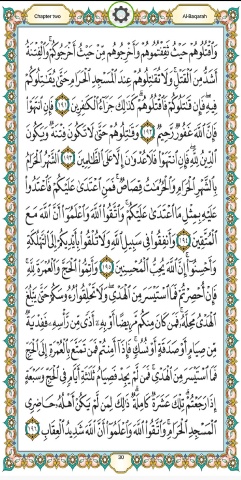 Chapter two Al-Baqarah
وَٱقۡتُلُوهُمۡ حَيۡثُ ثَقِفۡتُمُوهُمۡ وَأَخۡرِجُوهُم مِّنۡ حَيۡثُ أَخۡرَجُوكُمۡۚ وَٱلۡفِتۡنَةُ
أَشَدُّ مِنَ ٱلۡقَتۡلِۚ وَلَا تُقَٰتِلُوهُمۡ عِندَ ٱلۡمَسۡجِدِ ٱلۡحَرَامِ حَتَّىٰ يُقَٰتِلُوكُمۡ
فِيهِۖ فَإِن قَٰتَلُوكُمۡ فَٱقۡتُلُوهُمۡۗ كَذَٰلِكَ جَزَآءُ ٱلۡكَٰفِرِينَ ١٩١ فَإِنِ ٱنتَهَوۡاْ
فَإِنَّ ٱللَّهَ غَفُورٞ رَّحِيمٞ ١٩٢ وَقَٰتِلُوهُمۡ حَتَّىٰ لَا تَكُونَ فِتۡنَةٞ وَيَكُونَ
ٱلدِّينُ لِلَّهِۖ فَإِنِ ٱنتَهَوۡاْ فَلَا عُدۡوَٰنَ إِلَّا عَلَى ٱلظَّٰلِمِينَ ١٩٣ ٱلشَّهۡرُ ٱلۡحَرَامُ
بِٱلشَّهۡرِ ٱلۡحَرَامِ وَٱلۡحُرُمَٰتُ قِصَاصٞۚ فَمَنِ ٱعۡتَدَىٰ عَلَيۡكُمۡ فَٱعۡتَدُواْ
عَلَيۡهِ بِمِثۡلِ مَا ٱعۡتَدَىٰ عَلَيۡكُمۡۚ وَٱتَّقُواْ ٱللَّهَ وَٱعۡلَمُوٓاْ أَنَّ ٱللَّهَ مَعَ
ٱلۡمُتَّقِينَ ١٩٤ وَأَنفِقُواْ فِي سَبِيلِ ٱللَّهِ وَلَا تُلۡقُواْ بِأَيۡدِيكُمۡ إِلَى ٱلتَّهۡلُكَةِ
وَأَحۡسِنُوٓاْۚ إِنَّ ٱللَّهَ يُحِبُّ ٱلۡمُحۡسِنِينَ ١٩٥ وَأَتِمُّواْ ٱلۡحَجَّ وَٱلۡعُمۡرَةَ لِلَّهِۚ
فَإِنۡ أُحۡصِرۡتُمۡ فَمَا ٱسۡتَيۡسَرَ مِنَ ٱلۡهَدۡيِۖ وَلَا تَحۡلِقُواْ رُءُوسَكُمۡ حَتَّىٰ يَبۡلُغَ
ٱلۡهَدۡيُ مَحِلَّهُۥۚ فَمَن كَانَ مِنكُم مَّرِيضًا أَوۡ بِهِۦٓ أَذٗى مِّن رَّأۡسِهِۦ فَفِدۡيَةٞ
مِّن صِيَامٍ أَوۡ صَدَقَةٍ أَوۡ نُسُكٖۚ فَإِذَآ أَمِنتُمۡ فَمَن تَمَتَّعَ بِٱلۡعُمۡرَةِ إِلَى ٱلۡحَجِّ
فَمَا ٱسۡتَيۡسَرَ مِنَ ٱلۡهَدۡيِۚ فَمَن لَّمۡ يَجِدۡ فَصِيَامُ ثَلَٰثَةِ أَيَّامٖ فِي ٱلۡحَجِّ وَسَبۡعَةٍ
إِذَا رَجَعۡتُمۡۗ تِلۡكَ عَشَرَةٞ كَامِلَةٞۗ ذَٰلِكَ لِمَن لَّمۡ يَكُنۡ أَهۡلُهُۥ حَاضِرِي
ٱلۡمَسۡجِدِ ٱلۡحَرَامِۚ وَٱتَّقُواْ ٱللَّهَ وَٱعۡلَمُوٓاْ أَنَّ ٱللَّهَ شَدِيدُ ٱلۡعِقَابِ ١٩٦
30